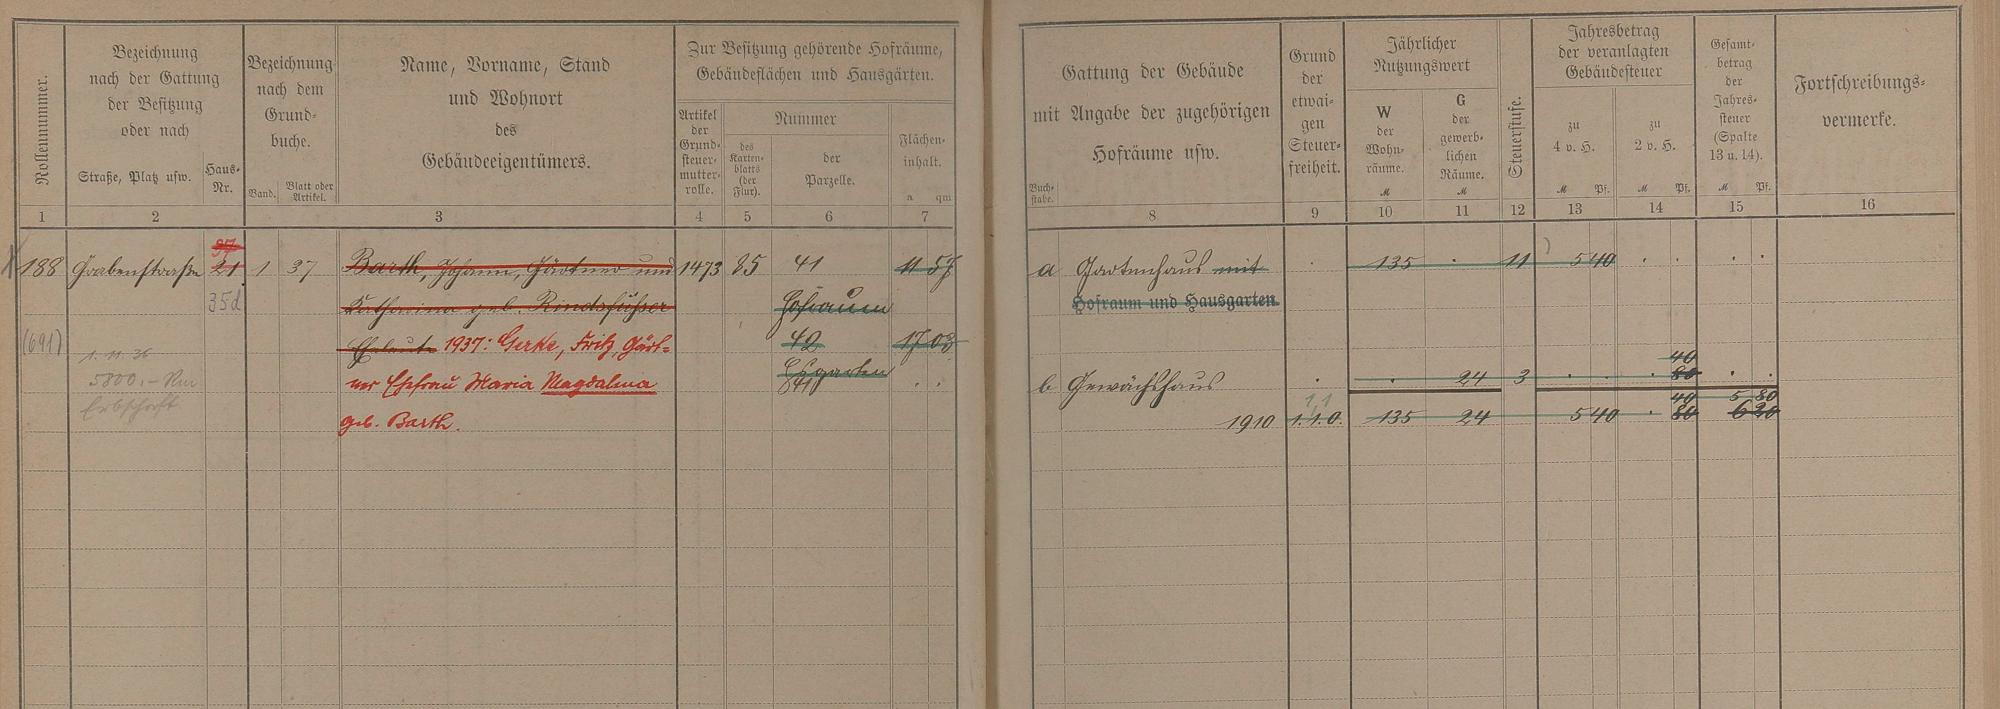 Rollennummer.
Bezeichnung
nach der Gattung
der Besitzung
oder nach
Straße, Platz usw.
Haus-
Nr.
Bezeichnung
nach dem
Grund-
buche.
Band.
Blatt oder
Artikel.
Name, Vorname, Stand
und Wohnort
des
Gebäudeeigentümers.
Zur Besitzung gehörende Hofräume,
Gebäudeflächen und Hausgärten.
Artikel
der
Grund-
steuer-
mutter-
rolle.
Nummer
des
Karten-
blatts
(der
Flur).
der
Parzelle.
Flächen-
inhalt.
a qm
1 2 3 4 5 6 7
188 Grabenstraße 21 1 37 Barth, Johann, Gärtner und 1473 85 41 11 57
35d Katharina geb. Rindsfüßer Hofraum
(691) Eheleute 1937: Gerke, Fritz, Gärt- 42 17 03
1.11.36
5800.- Rm ner Ehefrau Maria Magdalena Hsgarten
Erbschaft
geb. Barth.
Gattung der Gebäude
mit Angabe der zugehörigen
Hofräume usw.
Buch-
stabe.
Grund
der
etwai-
gen
Steuer-
freiheit.
Jährlicher
Nutzungswert
W
der
Wohn-
räume.
M
G
der
gewerb-
lichen
Räume.
M
Steuerstufe.
Jahresbetrag
der veranlagten
Gebäudesteuer
zu
4 v. H.
M Pf.
zu
2 v. H.
M Pf.
Gesamt-
betrag
der
Jahres-
steuer
(Spalte
13 u. 14).
M Pf.
Fortschreibungs-
vermerke.
8 9 10 11 12 13 14 15 16
a Gartenhaus mit . 135 . 11 5 40 . . . .
Hofraum und Hausgarten.
40
b Gewächshaus . . 24 3 . . . 80 . .
40 5 80
1910 1.1.0. 135 24 5 40 . 80 6 20